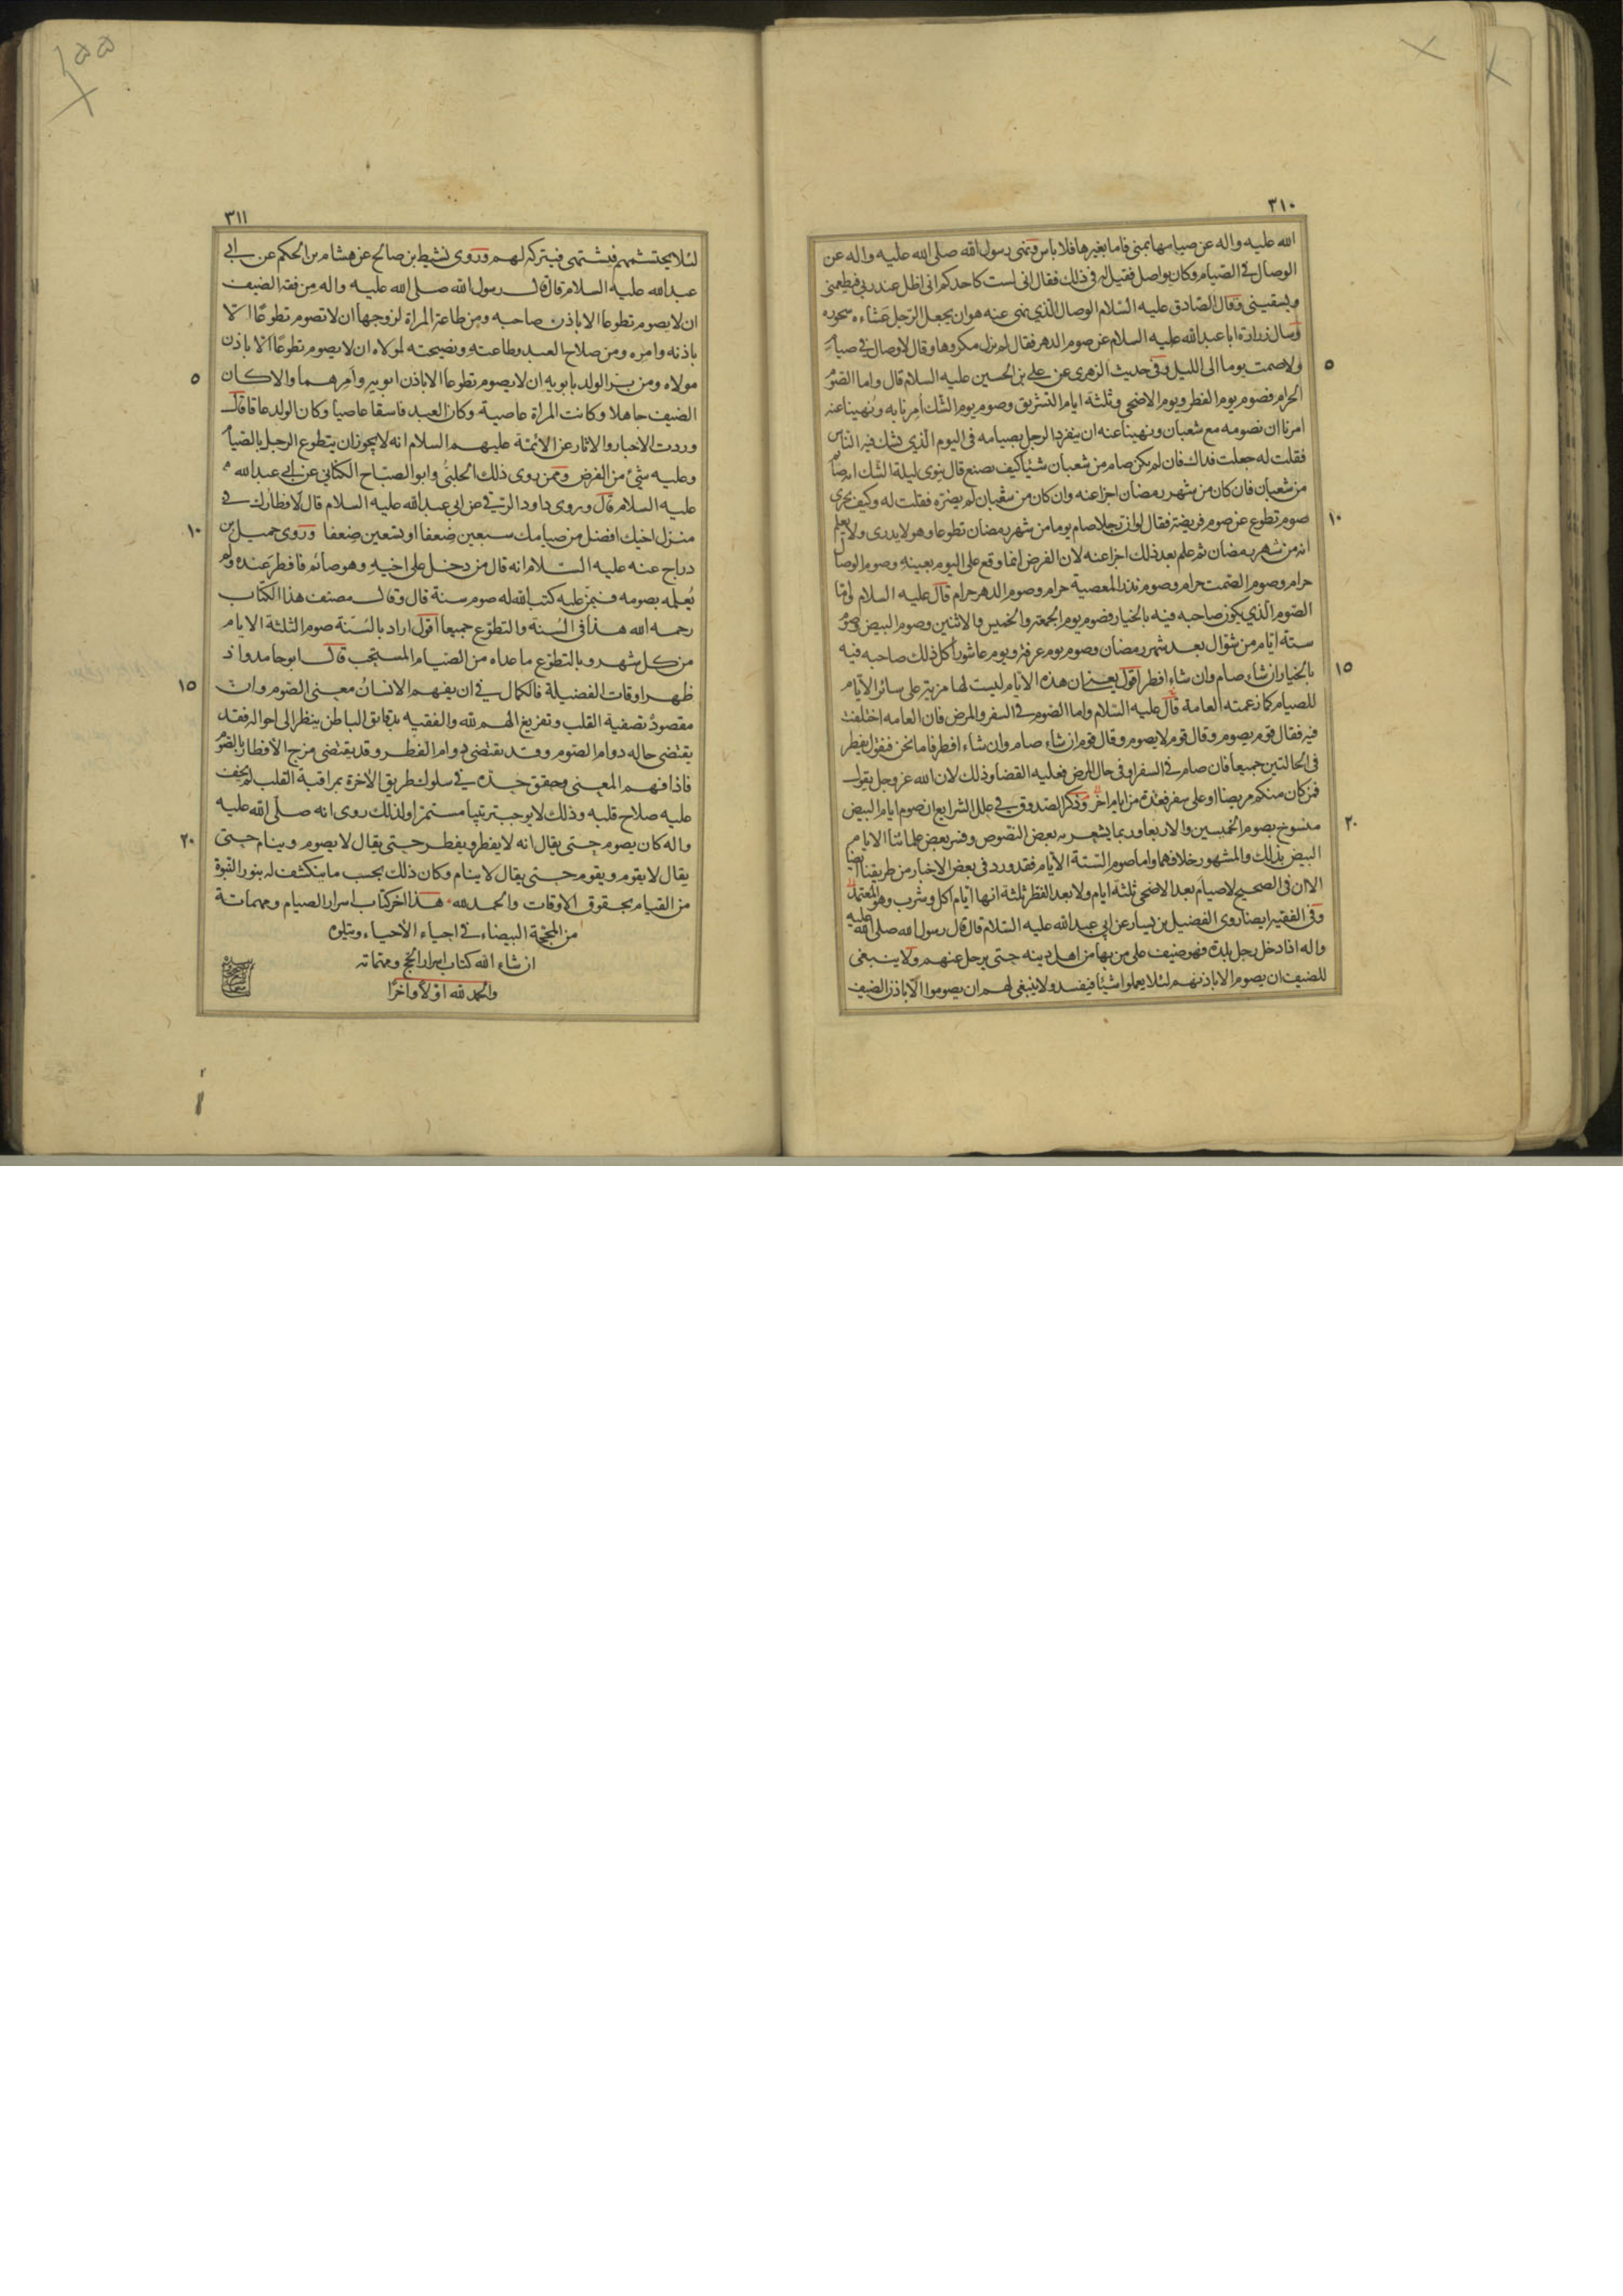 ٣١٠
الله عليه واله عن صيامها بمنى فاما بغيرها فلا باس ونهى رسول الله صلى الله عليه واله عن
الوصال في الصيام وكان يواصل فقيل له في ذلك فقال انى لست كاحدكم انى اظل عند ربي فيطعمنى
ويسقينى وقال الصّادق عليه السّلام الوصال الّذي نهى عنه هو ان يجعل الرّجل عشاءه سحوره
وسال زرارة ابا عبد الله عليه السلام عن صوم الدهر فقال لم يزل مكروها وقال لا وصال في صيام
٥ ولا صمت يوما الى الليل وفى حديث الزهرى عن على بن الحسين عليه السلام قال واما الصّوم
الحرام فصوم يوم الفطر ويوم الاضحى وثلثة ايام التشريق وصوم يوم الشّك اُمِرنا به ونُهينا عنه
امرنا ان نصومه مع شعبان ونهينا عنه ان ينفرد الرجل بصيامه فى اليوم الّذي يشك فيه النّاس
فقلت له جعلت فداك فان لم يكن صام من شعبان شيئا كيف يصنع قال ينوى ليلة الشّك انه صائم
من شعبان فان كان من شهر رمضان اجزا عنه وان كان من شعبان لم يضرّه فقلت له وكيف يجزى
١٠ صوم تطوع عن صوم فريضة فقال لو ان رجلا صام يوما من شهر رمضان تطوعا وهو لا يدرى ولا يعلم
انه من شهر رمضان ثم علم بعد ذلك اجزا عنه لان الفرض انما وقع على اليوم بعينه وصوم الوصال
حرام وصوم الصّمت حرام وصوم نذر المعصية حرام وصوم الدهر حرام قال عليه السلام وامّا
الصّوم الّذي يكون صاحبه فيه بالخيار فصوم يوم الجمعة والخميس والاثنين وصوم البيض وصوم
ستة ايّام من شوّال بعد شهر رمضان وصوم يوم عرفة ويوم عاشورا كل ذلك صاحبه فيه
١٥ بالخيار ان شاء صام وان شاء افطر اقول يعنى ان هذه الايّام ليست لها مزية على سائر الايّام
للصيام كما زعمته العامة قال عليه السّلام واما الصّوم في السفر والمرض فان العامه اختلفت
فيه فقال قوم يصوم وقال قوم لا يصوم وقال قوم ان شاء صام وان شاء افطر فاما نحن فنقول يفطر
فى الحالتين جميعا فان صام في السفر او فى حال المرض فعليه القضا وذلك لان الله عز وجل يقول
فمن كان منكم مريضا او على سفر فعدة من ايام اخر وذكر الصّدوق في علل الشرايع ان صوم ايام البيض
٢٠ منسوخ بصوم الخميسين والاربعا وربما يشعر به بعض النّصوص وفسّر بعض علمائنا الايام
البيض بذلك والمشهور خلافهما واما صوم السّتة الايّام فقد ورد فى بعض الاخبار من طريقنا ايضا
الا ان فى الصحيح لا صيام بعد الاضحى ثلثة ايام ولا بعد الفطر ثلثة انها ايّام اكل وشرب وهو المعتمد
وفى الفقيه ايضا روى الفضيل بن يسار عن ابى عبد الله عليه السّلام قال قال رسول الله صلى الله عليه
واله اذا دخل رجل بلدة فهو ضيف على من بها من اهل دينه حتى يرحل عنهم ولا ينبغى
للضيف ان يصوم الا باذنهم لئلا يعملوا شيئا فيفسد ولا ينبغى لهم ان يصوموا الّا باذن الضيف
٣١١
لئلا يحتشمهم فيشتهى فيتركه لهم وروى نشيط بن صالح عن هشام بن الحكم عن ابي
عبد الله عليه السلام قال قال رسول الله صلى الله عليه واله مِن فقه الضيف
ان لا يصوم تطوعا الا باذن صاحبه ومن طاعة المراة لزوجها ان لا تصوم تطوعًا الّا
باذنه وامره ومن صلاح العبد وطاعته ونصيحته لمولاه ان لا يصوم تطوعًا الّا باذن
٥ مولاه ومن بِرّ الولد بابويه ان لا يصوم تطوعا الا باذن ابويه وامرهما والا كان
الضيف جاهلا وكانت المراة عاصية وكان العبد فاسقا عاصيا وكان الولد عاقا قال
وردت الاخبار والاثار عن الائمّة عليهم السلام انه لا يجوز ان يتطوع الرجل بالصّيام
وعليه شئ من الفرض وممّن روى ذلك الحلبىّ وابو الصبّاح الكنانى عن ابي عبد الله
عليه السلام قال وروى داود الرّقى عن ابى عبد الله عليه السلام قال لافطارك في
١٠ منزل اخيك افضل من صيامك سبعين ضِعفا او تسعين ضِعفا وروى جميل بن
دراج عنه عليه السّلام انه قال من دخل على اخيه وهو صائم فافطر عنده ولم
يُعلِمه بصومه فيمنّ عليه كتب الله له صوم سنة قال وقال مصنف هذا الكتاب
رحمه الله هذا فى السُنة والتطوّع جميعا اقول اراد بالسّنة صوم الثلثة الايام
من كل شهر وبالتطوّع ما عداه من الصّيام المستحب قال ابو حامد واذ
١٥ ظهر اوقات الفضيلة فالكمال في ان يفهم الانسان معنى الصّوم وان
مقصودَه تصفية القلب وتفريغ الهم لله والفقيه بدقائق الباطن ينظر الى احواله فقد
يقتضى حاله دوام الصّوم وقد يقتضى دوام الفطر وقد يقتضى مزج الافطار بالصّوم
فاذا فهم المعنى وتحقق حدّه في سلوك طريق الآخرة بمراقبة القلب لم يخف
عليه صلاح قلبه وذلك لا يوجب ترتيبا مستمرّا ولذلك روى انه صلّى الله عليه
٢٠ واله كان يصوم حتى يقال انه لا يفطر ويفطر حتى يقال لا يصوم وينام حتى
يقال لا يقوم ويقوم حتى يقال لا ينام وكان ذلك بحسب ما ينكشف له بنور النّبوة
من القيام بحقوق الاوقات والحمد لله هذا آخر كتاب اسرار الصيام ومهماته
من المحجّة البيضاء في احياء الأحياء ويتلوه
ان شاء الله كتاب اسرار الحج ومهماته
والحمد لله اوّلا وآخرًا